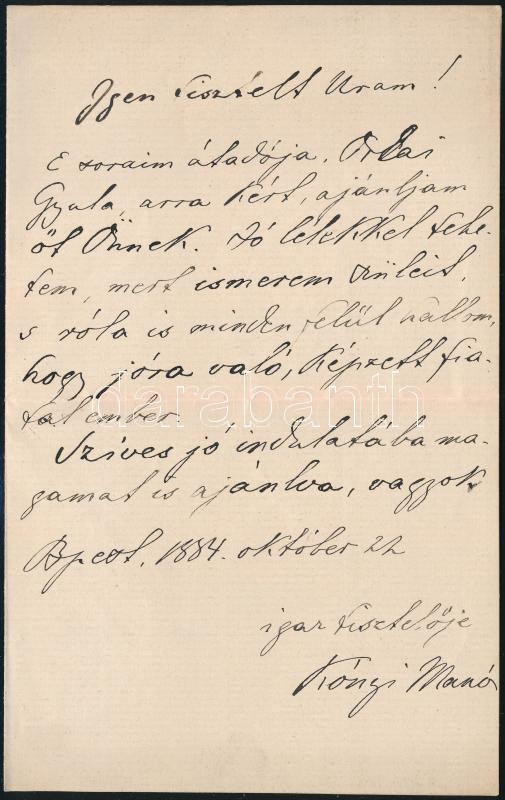 Igen tisztelt Uram!
E soraim átadója, Ordai
Gyula, arra kért, ajánljam
őt Önnek. Jó lélekkel tehe-
tem, mert ismerem szüleit,
s róla is minden felül hallom,
hogy jóra való, képzett fia-
tal ember.
Szíves jó indulatába ma-
gamat is ajánlva, vagyok
Bpest, 1884. október 22
igaz tisztelője
Kónyi Manó
darabanth